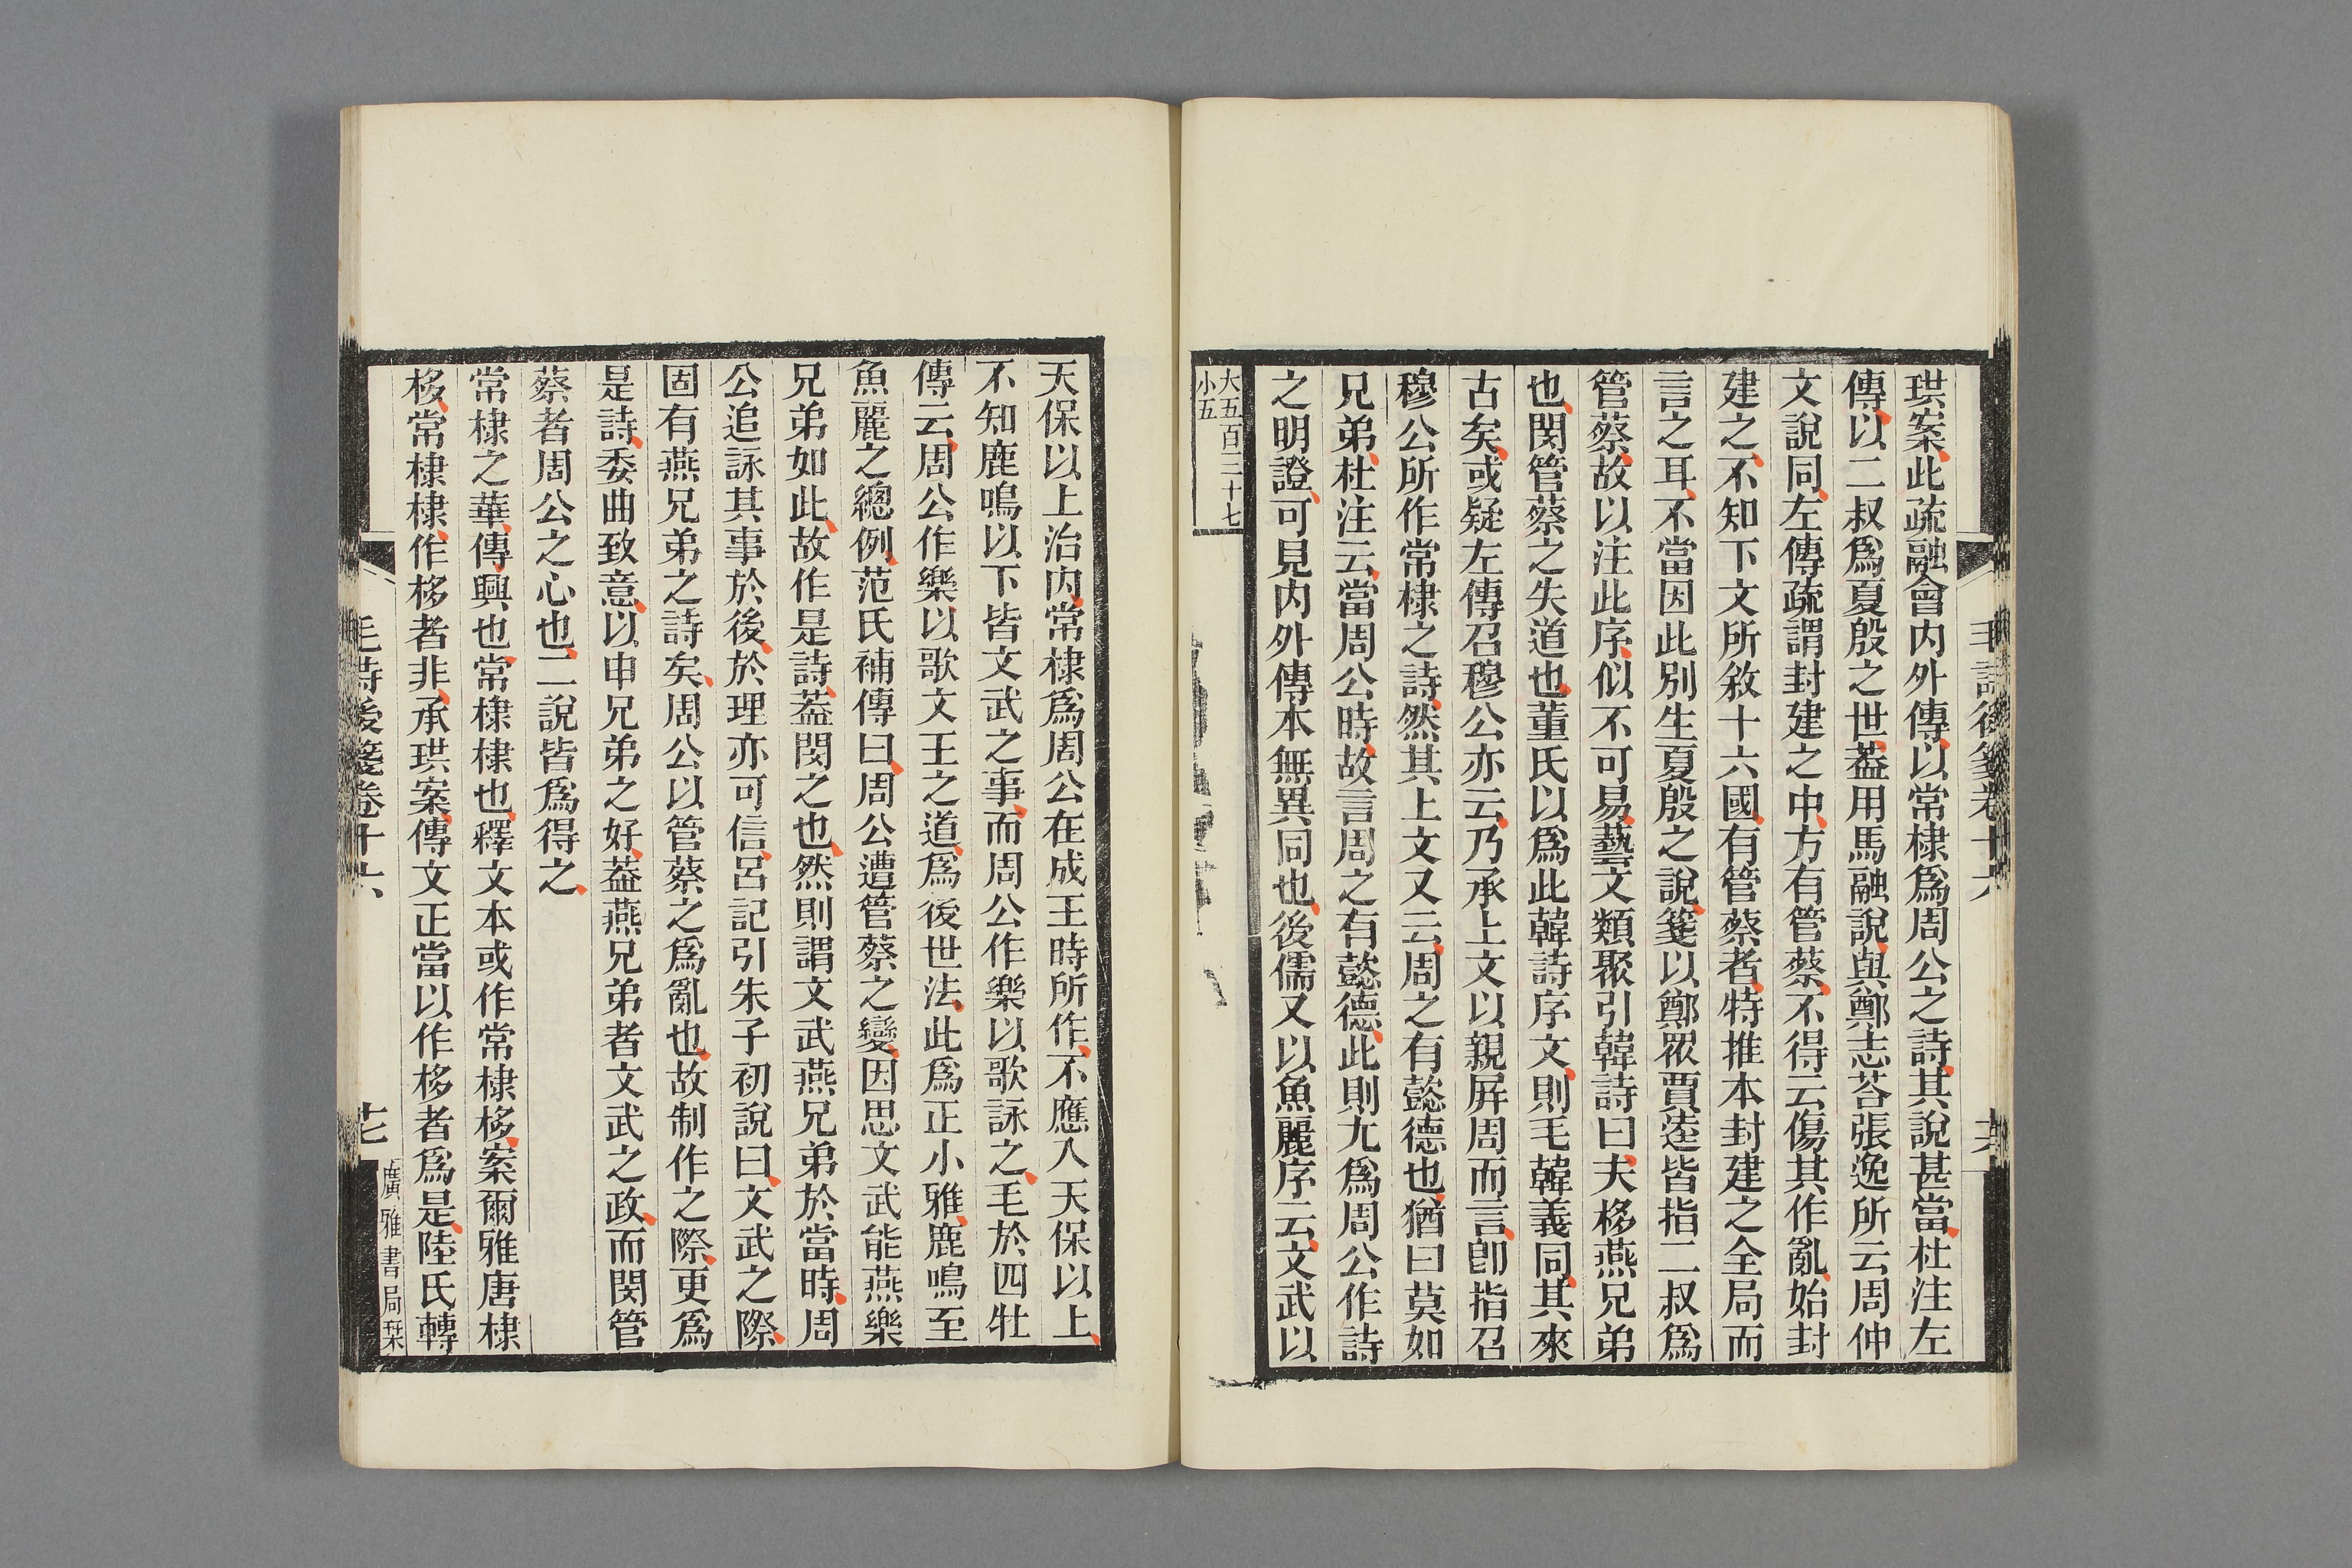 珙案此疏融會内外傳以常棣爲周公之詩其說甚當杜注左
傳以二叔爲夏殷之世葢用馬融說與鄭志荅張逸所云周仲
文說同左傳疏謂封建之中方有管蔡不得云傷其作亂始封
建之不知下文所敘十六國有管蔡者特推本封建之全局而
言之耳不當因此別生夏殷之說箋以鄭眾賈逵皆指二叔爲
管蔡故以注此序似不可易藝文類聚引韓詩曰夫栘燕兄弟
也閔管蔡之失道也董氏以爲此韓詩序文則毛韓義同其來
古矣或疑左傳召穆公亦云乃承上文以親屏周而言卽指召
穆公所作常棣之詩然其上文又云周之有懿德也猶曰莫如
兄弟杜注云當周公時故言周之有懿德此則尤爲周公作詩
之明證可見内外傳本無異同也後儒又以魚麗序云文武以
大五百二十七
小五
毛詩後箋卷十六
天保以上治内常棣爲周公在成王時所作不應入天保以上
不知鹿鳴以下皆文武之事而周公作樂以歌詠之毛於四牡
傳云周公作樂以歌文王之道爲後世法此爲正小雅鹿鳴至
魚麗之總例范氏補傳曰周公遭管蔡之變因思文武能燕樂
兄弟如此故作是詩葢閔之也然則謂文武燕兄弟於當時周
公追詠其事於後於理亦可信呂記引朱子初說曰文武之際
固有燕兄弟之詩矣周公以管蔡之爲亂也故制作之際更爲
是詩委曲致意以申兄弟之好葢燕兄弟者文武之政而閔管
蔡者周公之心也二說皆爲得之
常棣之華傳興也常棣棣也釋文本或作常棣栘案爾雅唐棣
栘常棣棣作栘者非承珙案傳文正當以作栘者爲是陸氏轉
毛詩後箋卷十六
廣雅書局栞